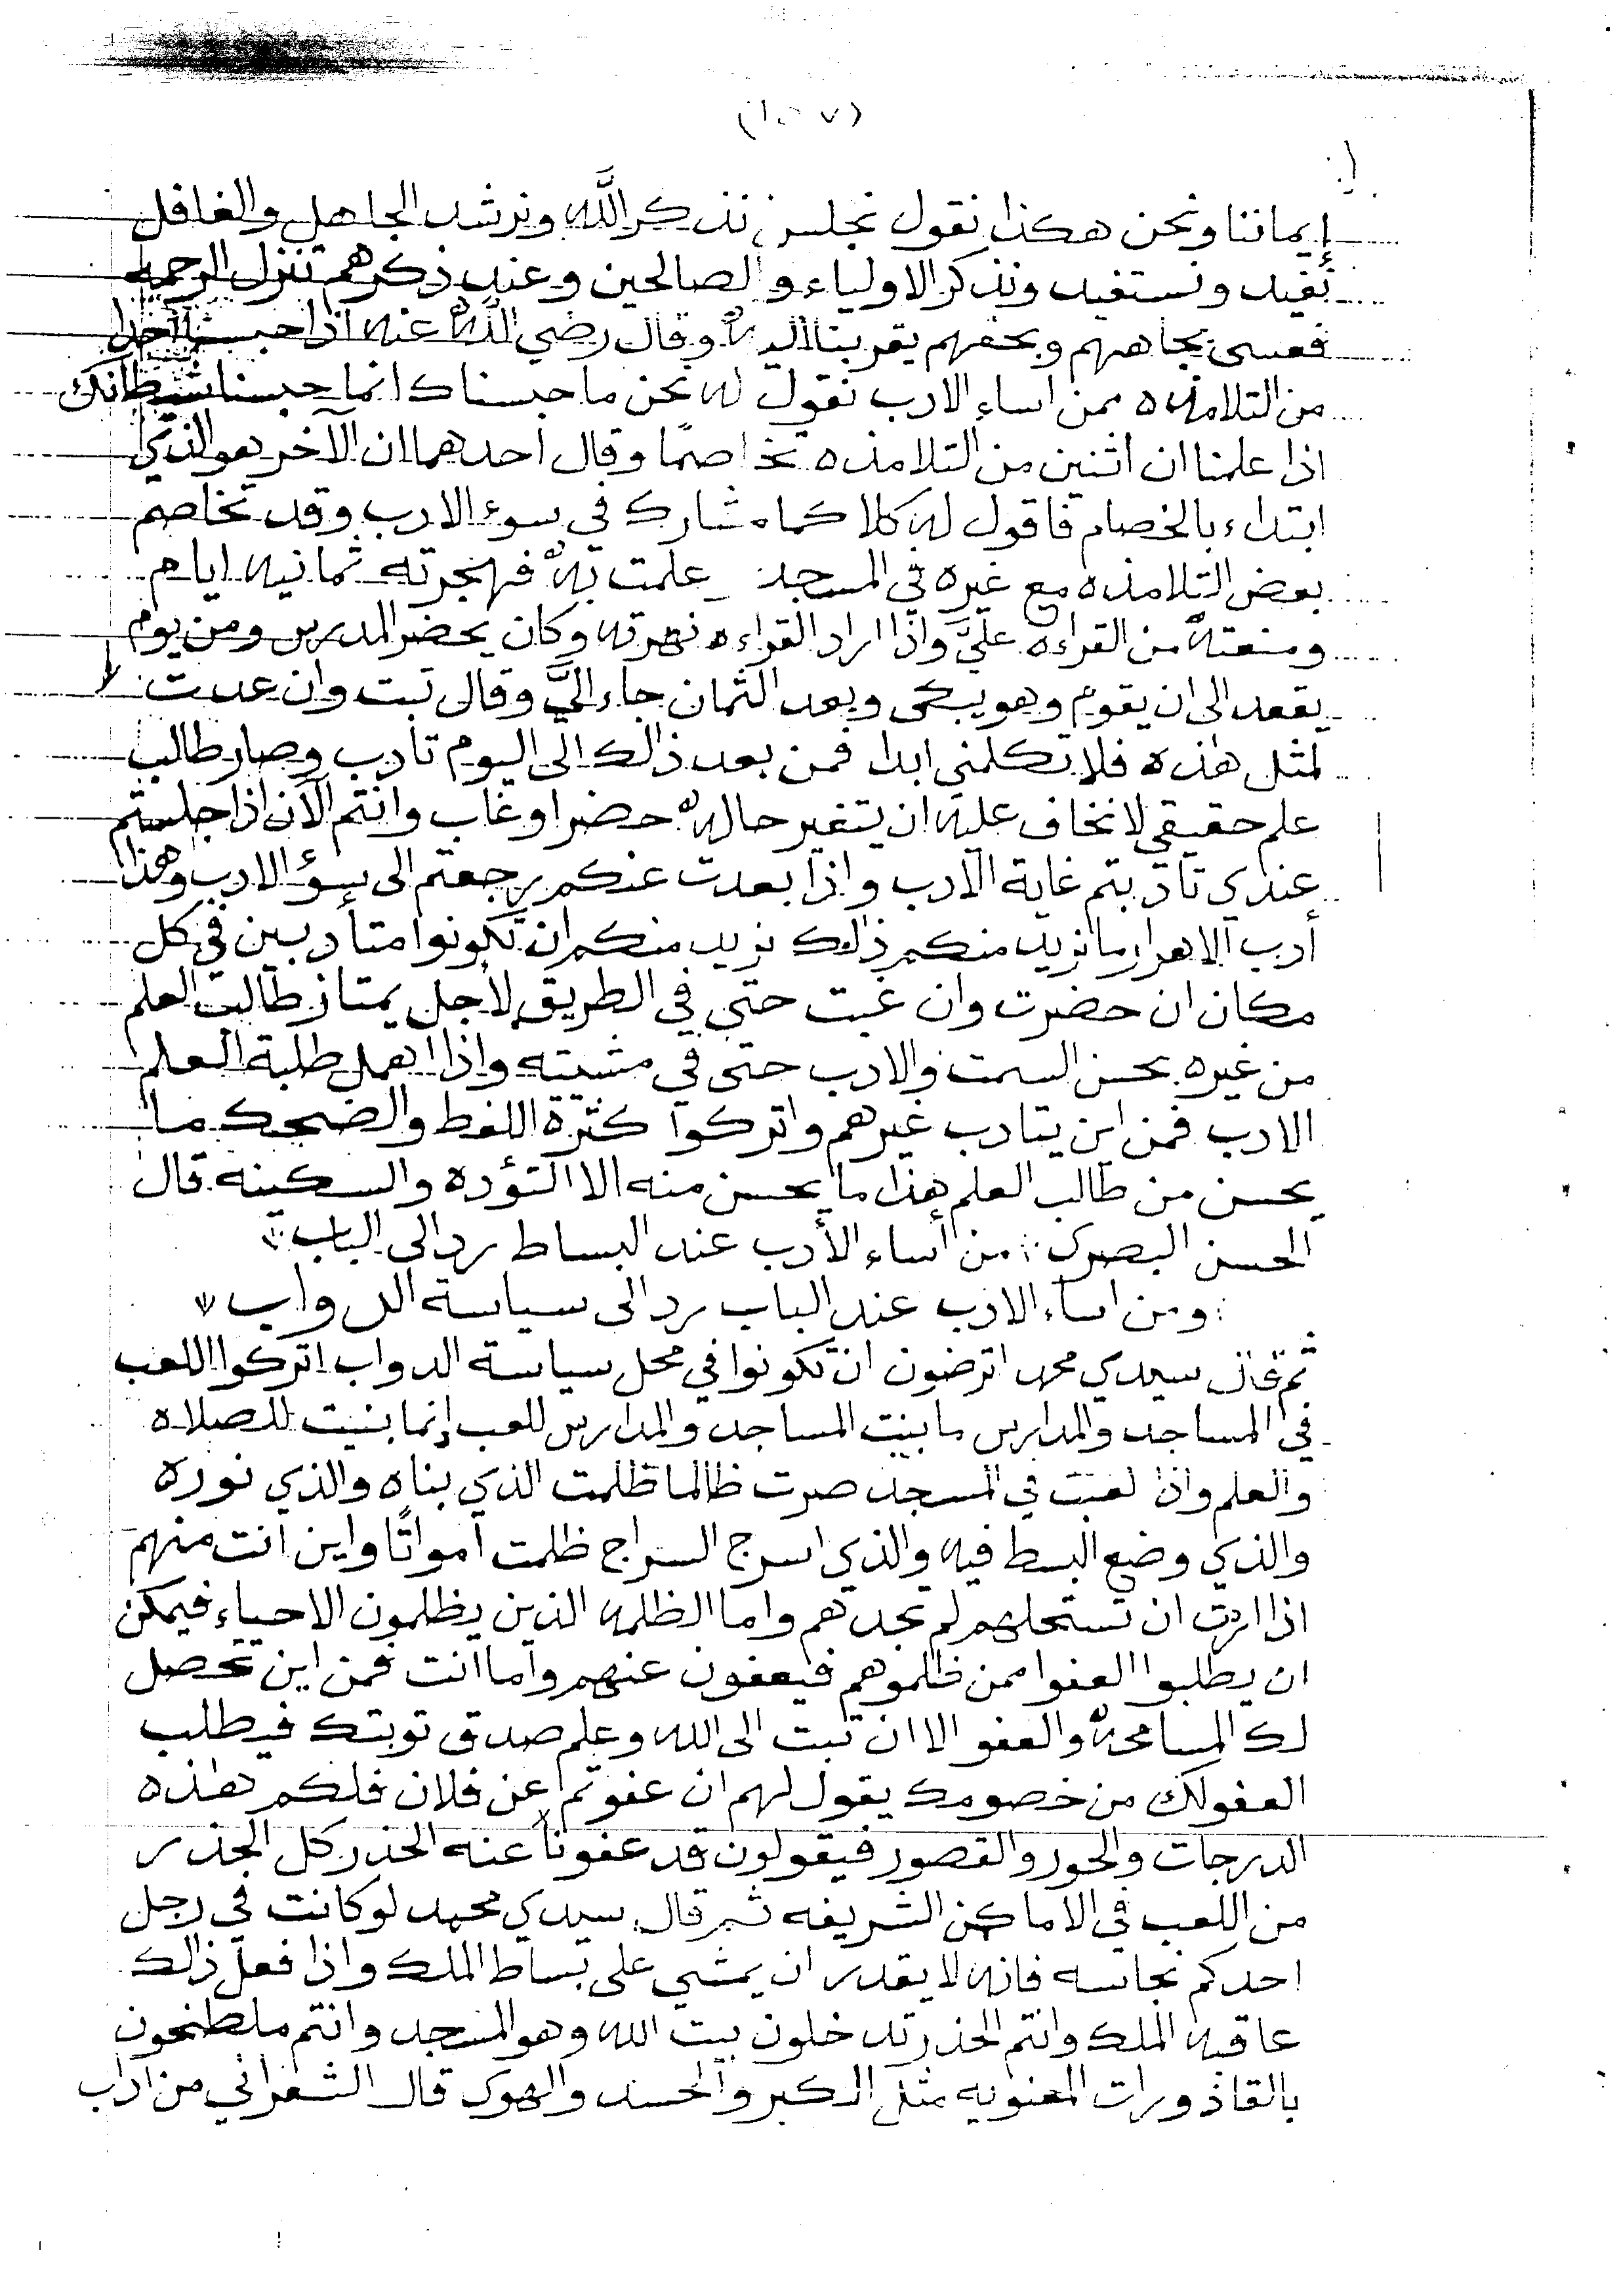 (١٥٧)
إيماننا ونحن هكذا نقول نجلس نذكر الله ونرشد الجاهل والغافل
نفيد ونستفيد ونذكر الاولياء والصالحين وعند ذكرهم تنزل الرحمة
فعسى بجاههم وبحقهم يقربنا اليه وقال رضي الله عنه اذا حبسنا احدا
من التلامذه ممن اساء الادب نقول له نحن ما حبسناك انما حبسنا شيطانك
اذا علمنا ان اثنين من التلامذه تخاصما وقال احدهما ان الآخر هو الذي
ابتداء بالخصام فاقول له كلاكما مشارك في سوء الادب وقد تخاصم
بعض التلامذه مع غيره في المسجد علمت به فهجرته ثمانيه ايام
ومنعته من القراءه عليَّ واذا اراد القراءه نهرته وكان يحضر المدرس ومن يوم
يقعد الى ان يقوم وهو يبكي وبعد الثمان جاء اليَّ وقال تبت وان عدت
لمثل هذه فلا تكلمني ابدا فمن بعد ذالك الى اليوم تادب وصار طالب
علم حقيقي لا نخاف عليه ان يتغير حاله حضر او غاب وانتم الآن اذا جلستم
عندي تادبتم غاية الادب واذا بعدت عنكم رجعتم الى سؤ الادب وهذا
أدب الاهرار ما نريد منكم ذالك نريد منكم ان تكونوا متأدبين في كل
مكان ان حضرت وان غبت حتى في الطريق لأجل يمتاز طالب العلم
من غيره بحسن السمت والادب حتى في مشيته واذا اهمل طلبة العلم
الادب فمن اين يتادب غيرهم واتركوا كثرة اللغط والضحك ما
يحسن من طالب العلم هذا ما يحسن منه الا التؤده والسكينه قال
الحسن البصرى : من أساء الأدب عند البساط رد الى الباب :
: ومن اساء الادب عند الباب رد الى سياسة الدواب
ثم قال سيدي محمد اترضون ان تكونوا في محل سياسة الدواب اتركوا اللعب
في المساجد والمدارس ما بنيت المساجد والمدارس للعب إنما بنيت للصلاه
والعلم واذا لعبت في المسجد صرت ظالما ظلمت الذي بناه والذي نوره
والذي وضع البسط فيه والذي اسرج السراج ظلمت امواتًا واين انت منهم
اذا اردت ان تستحلهم لم تجدهم واما الظلمه الذين يظلمون الاحياء فيمكن
ان يطلبوا العفو ممن ظلموهم فيعفون عنهم واما انت فمن اين تحصل
لك المسامحه والعفو الا ان تبت الى الله وعلم صدق توبتك فيطلب
العفو لك من خصومك يقول لهم ان عفوتم عن فلان فلكم هذه
الدرجات والحور والقصور فيقولون قد عفونا عنه الحذر كل الحذر
من اللعب في الاماكن الشريفه ثم قال سيدي محمد لو كانت في رجل
احدكم نجاسه فانه لا يقدر ان يمشي على بساط الملك واذا فعل ذالك
عاقبه الملك وانتم الحذر تدخلون بيت الله وهو المسجد وانتم ملطخون
بالقاذورات المعنويه مثل الكبر والحسد والهوى قال الشعراني من اداب